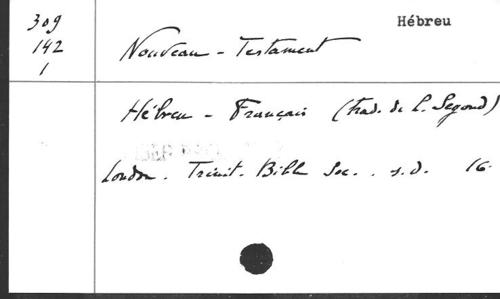 309
142
1
Hébreu
Nouveau - Testament
Hébreu - Français (trad. de L. Segond)
London. Trinit. Bibl. Soc. . s.d. 16.